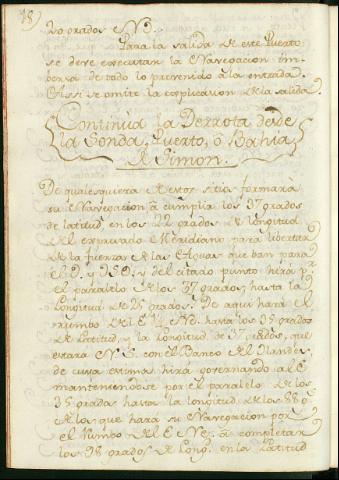 18)
20 grados N.O.
Para la salida de este Puerto
se debe executar la Navegacion in-
bersa de todo lo prevenido à la entrada.
Assi se omite la explicacion de la salida.
Continùa la Derrota desde
la Sonda, Puerto, ô Bahia
de Simon.
De qualesquiera de estos sitios formarà
su Navegacion â cumplir los 37 grados
de latitud, en los 22 grados de longitud
del expresado Meridiano para libertar
de la fuerza de las Aguas que ban para
el O. y OSO. y del citado punto hirà pr.
el paralelo de los 37 grados, hasta la
Longitud de 25 grados. De aqui harà el
rumbo del E ¼ NE. hasta los 35 grados
de Latitud, y la longitud de 37 grados, que
estarà N.S. con el Banco del Olandes,
de cuya estima hirà governando al E.
manteniendose por el paralelo de los
35 grados hasta la longitud de los 88 gs.
de los que harà su Navegacion por
el Rumbo del E NE. â completar
los 98 grados de Long. en la Latitud